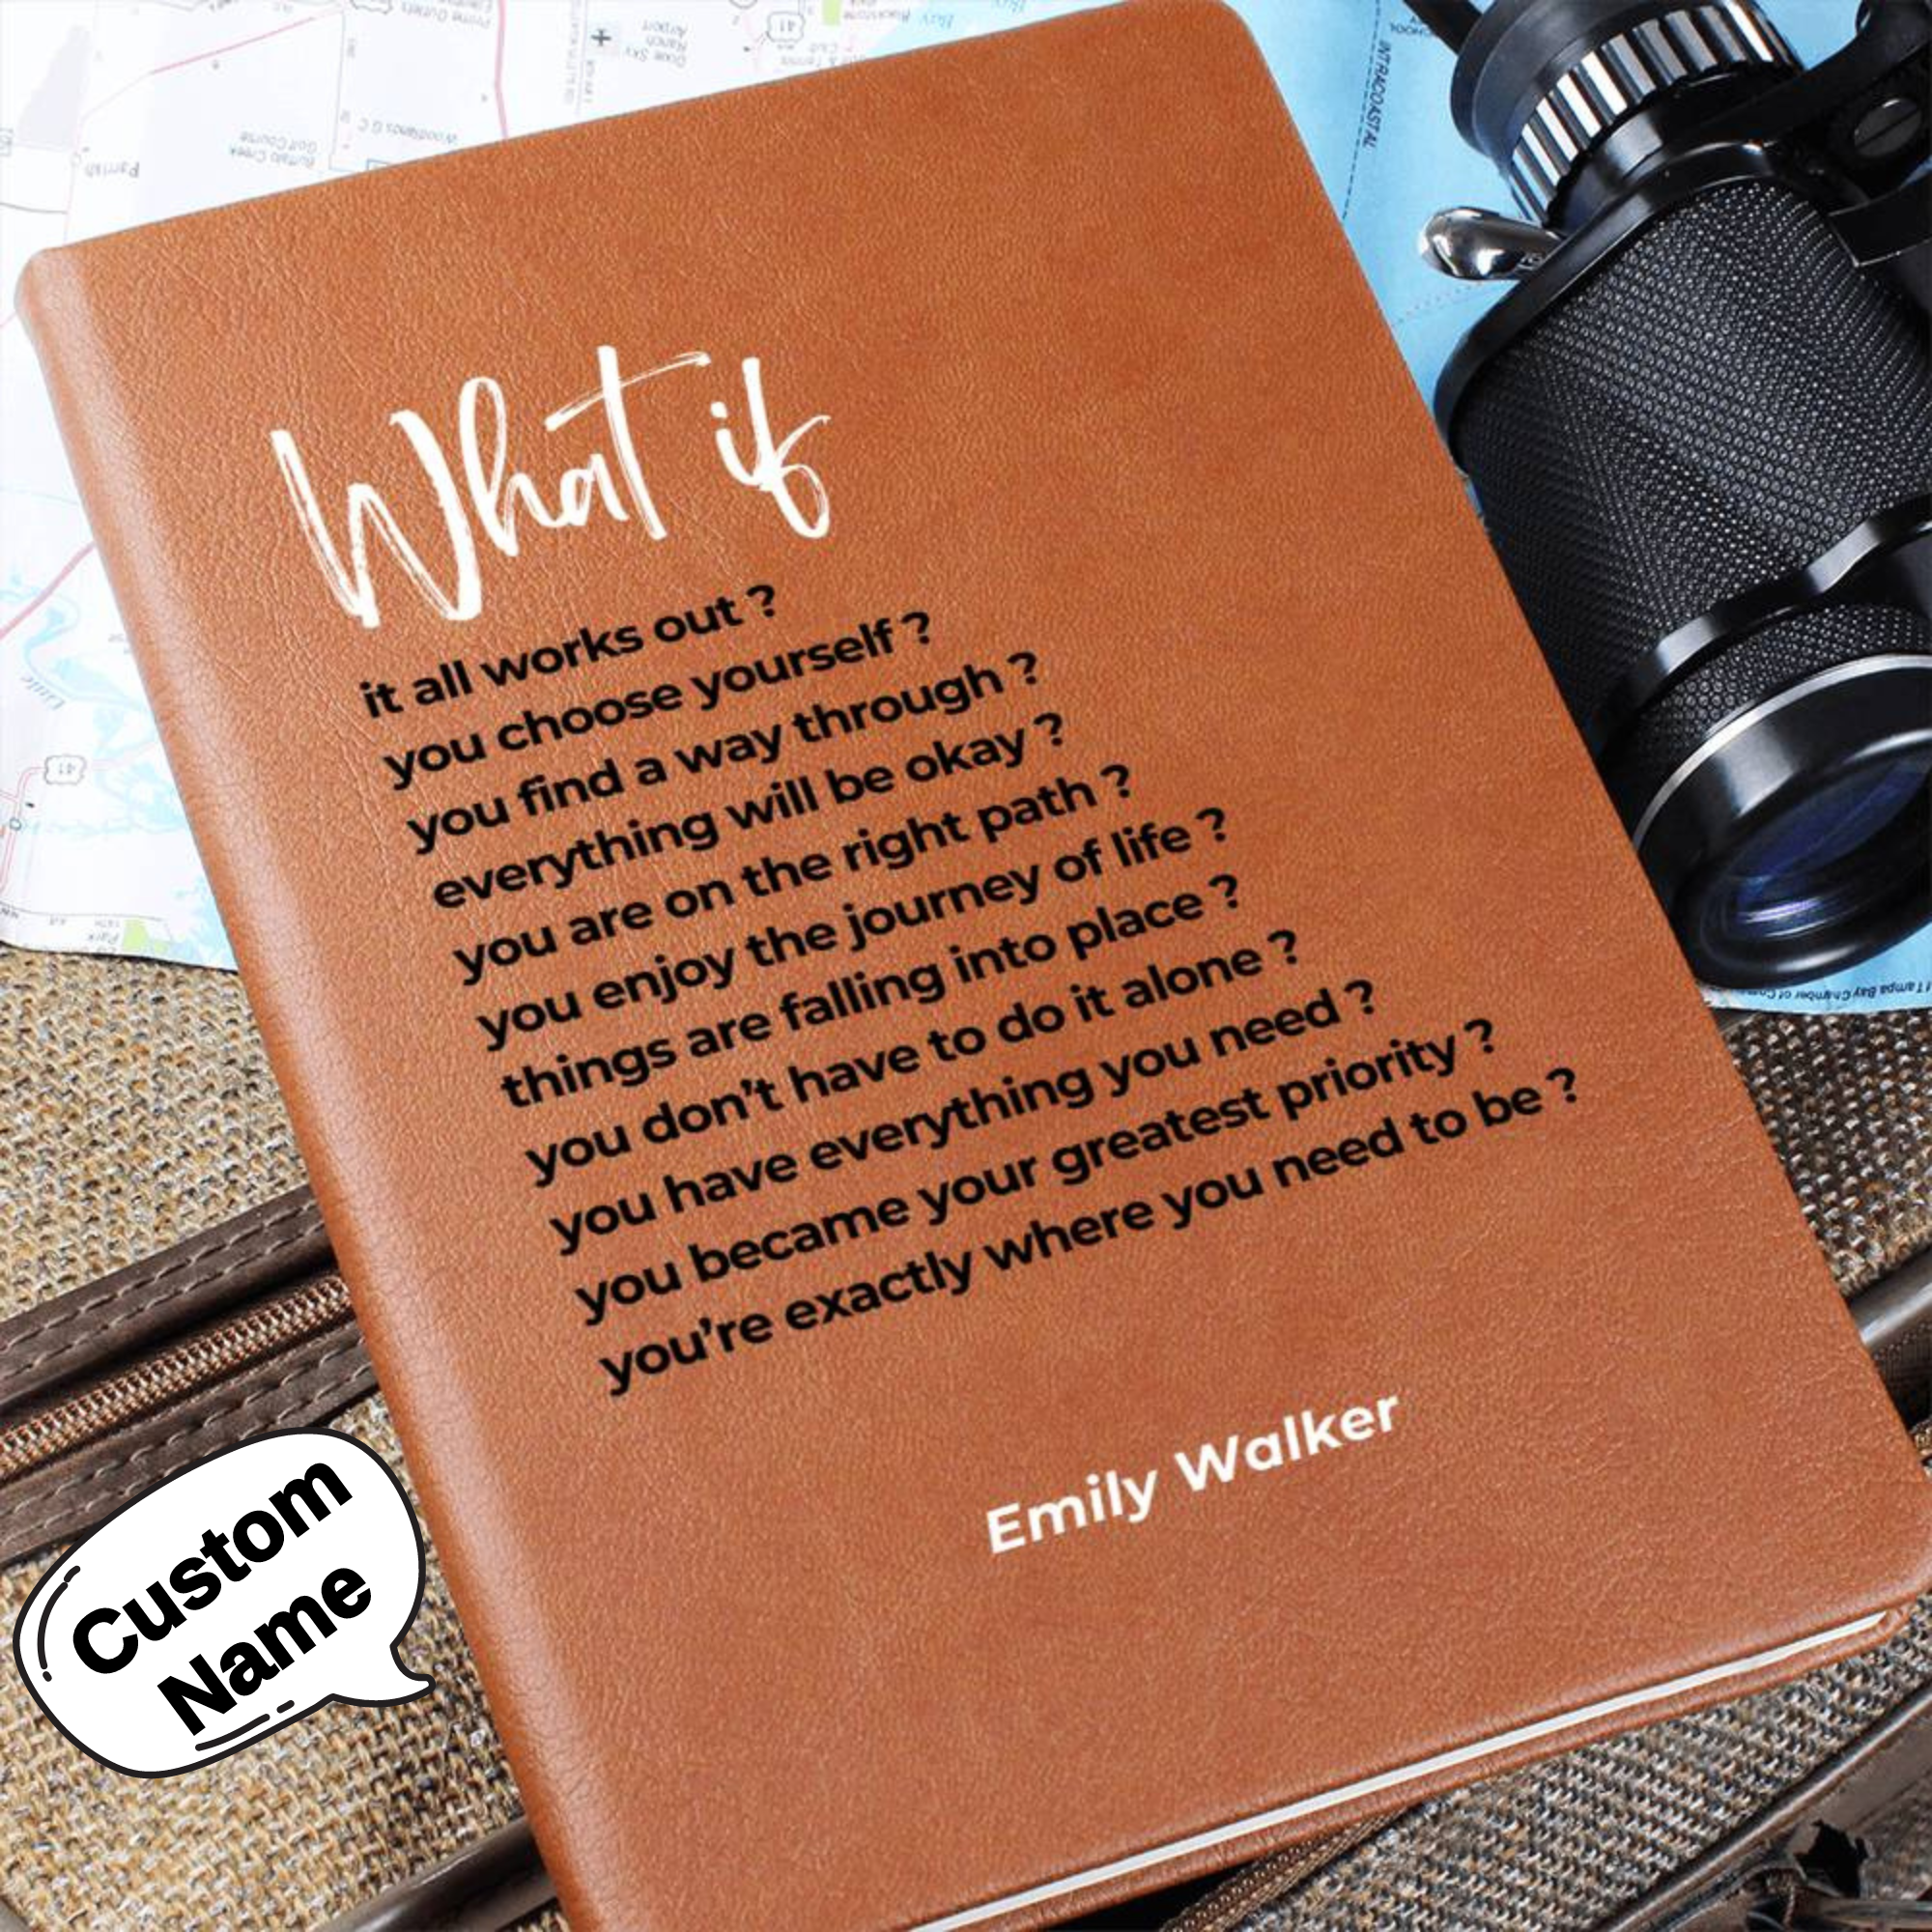 What if
it all works out ?
you choose yourself ?
you find a way through ?
everything will be okay ?
you are on the right path ?
you enjoy the journey of life ?
things are falling into place ?
you don't have to do it alone ?
you have everything you need ?
you became your greatest priority ?
you're exactly where you need to be ?
Emily Walker
Custom
Name
INTRACOASTAL
Parrish
Buffalo Creek
Golf Course
Airport
41
41
Park